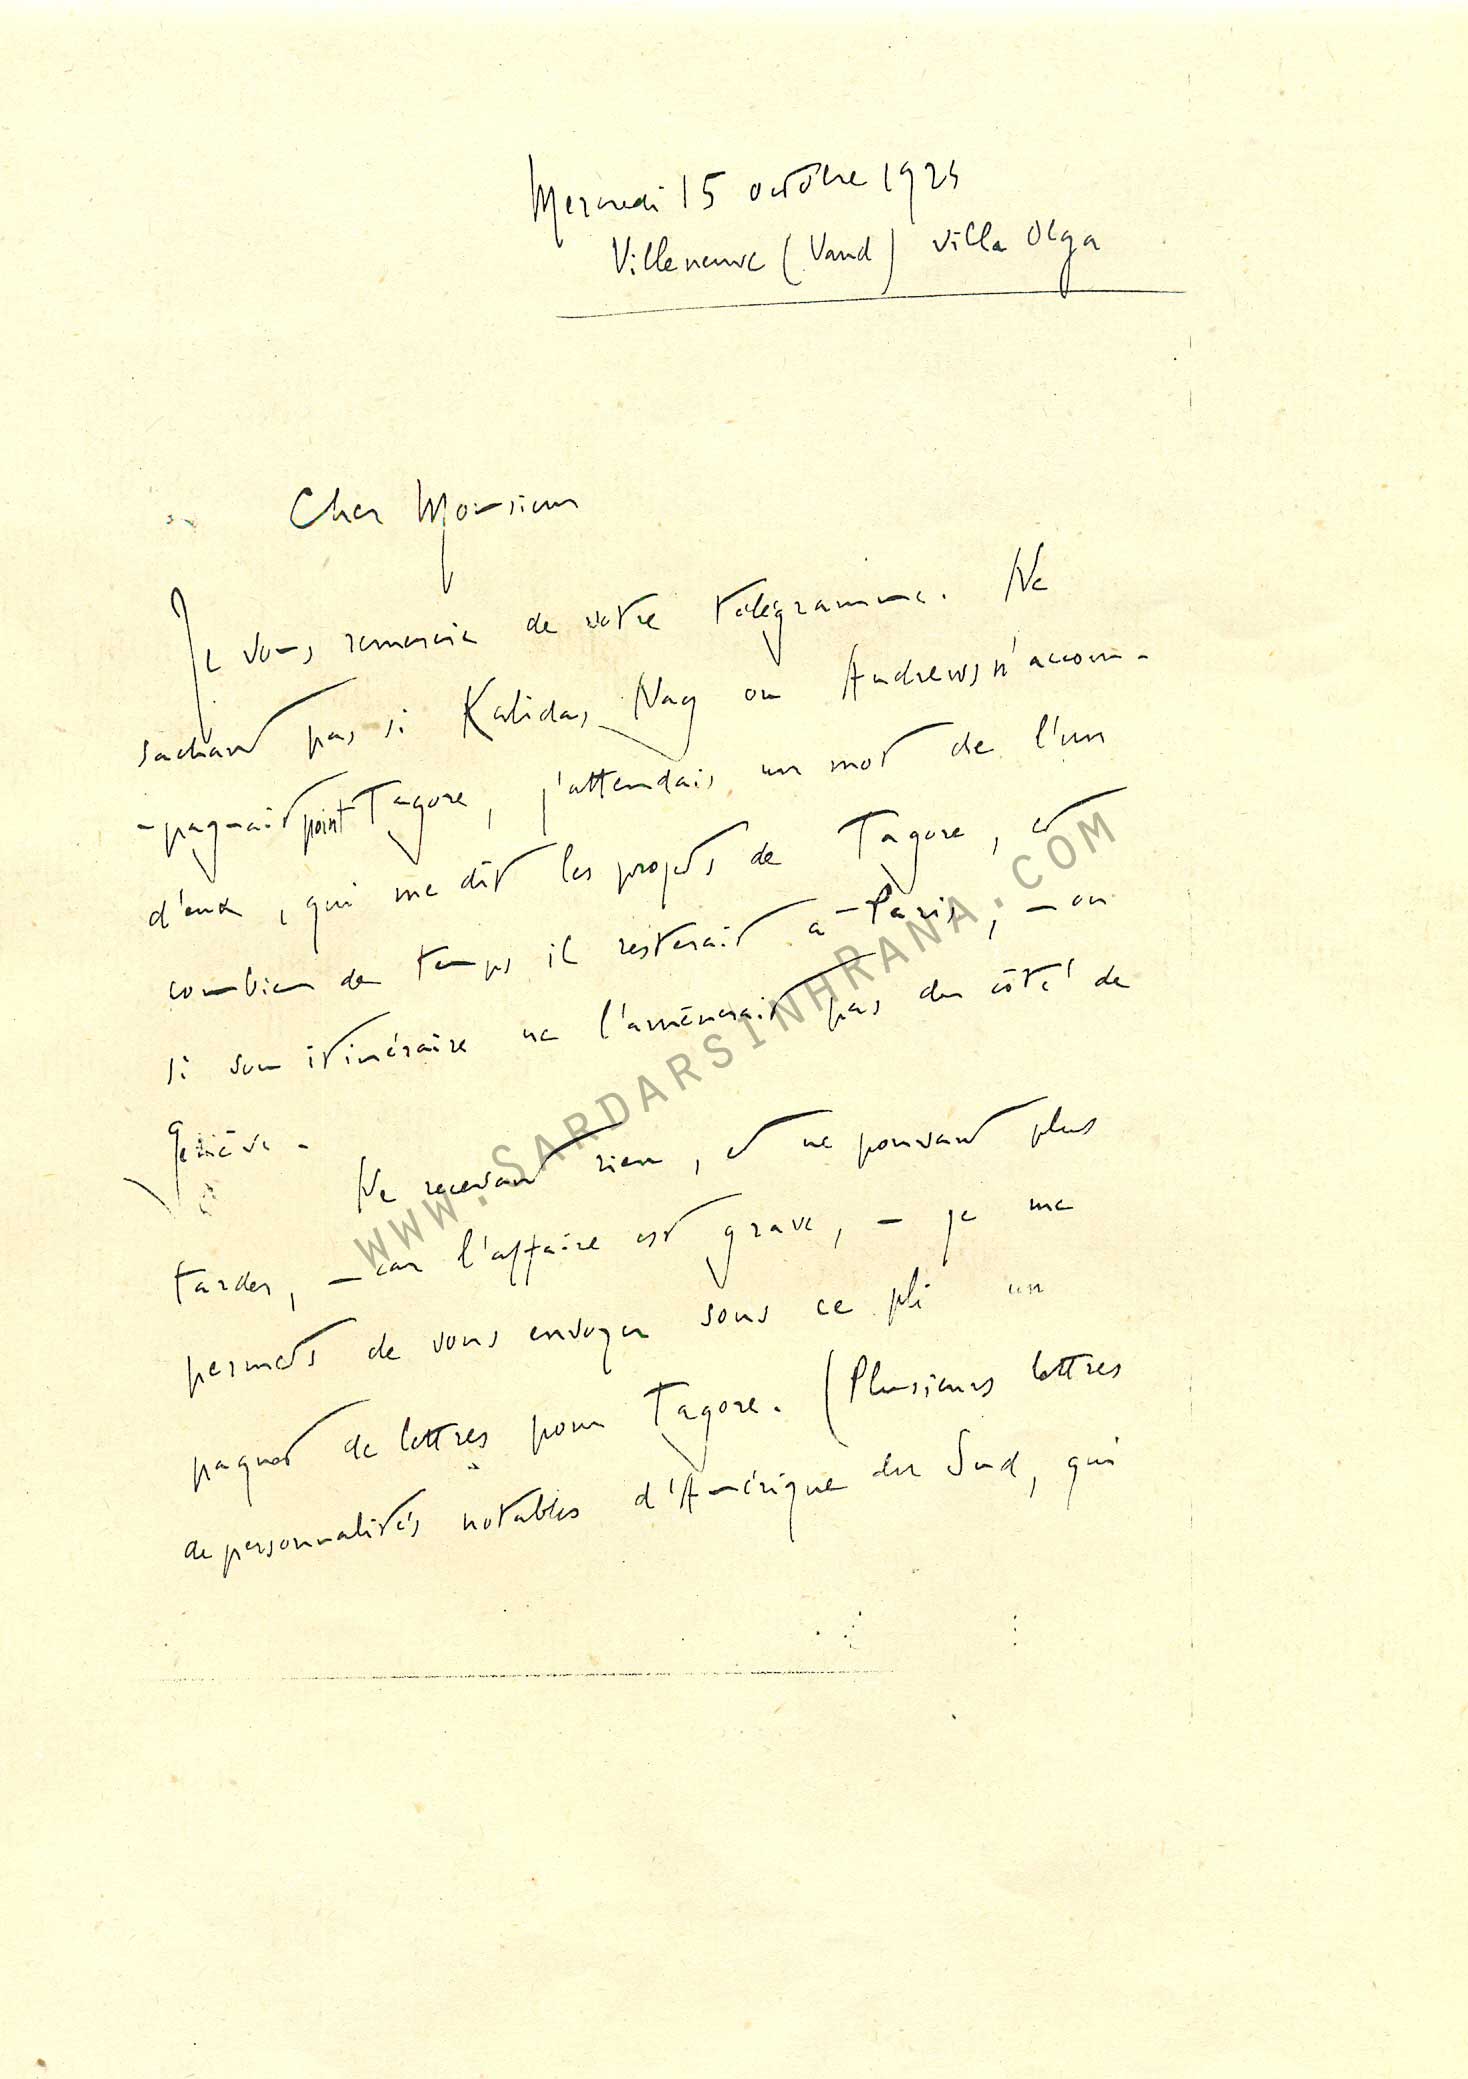 Mercredi 15 octobre 1924
Villeneuve (Vaud) villa Olga
Cher Monsieur
Je vous remercie de votre télégramme. Ne
sachant pas si Kalidas Nag ou Andrews n'accom-
-pagnait point Tagore, j'attendais un mot de l'un
d'eux, qui me dît les projets de Tagore, et
combien de temps il resterait à Paris, – ou
si son itinéraire ne l'amènerait pas du côté de
Genève –
Ne recevant rien, et ne pouvant plus
tarder, – car l'affaire est grave, – je me
permets de vous envoyer sous ce pli un
paquet de lettres pour Tagore. (Plusieurs lettres
de personnalités notables d'Amérique du Sud, qui
www.SARDARSINHRANA.COM